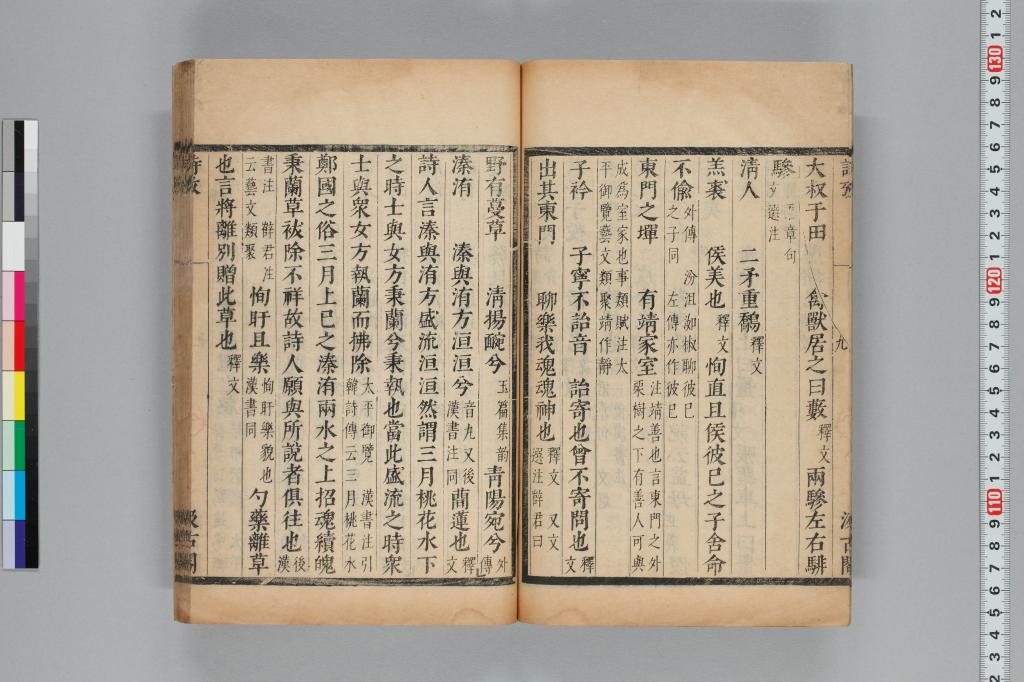 九
大叔于田　禽獸居之曰藪釋文兩驂左右騑
驂章句文選注
清人　二矛重鷮釋文
羔裘　侯美也釋文恂直且侯彼已之子舍命
不偸外傳　汾沮洳椒聊彼已之子同　左傳亦作彼已
東門之墠　有靖家室注靖善也言東門之外栗樹之下有善人可與
成爲室家也事類賦注太平御覽藝文類聚靖作靜
子衿　子寧不詒音　詒寄也曾不寄問也釋文
出其東門　聊樂我魂魂神也釋文　又文選注薛君曰
野有蔓草　淸揚畹兮玉篇集韻靑陽宛兮外傳
溱洧　溱與洧方洹洹兮音九又後漢書注同蕑蓮也釋文
詩人言溱與洧方盛流洹洹然謂三月桃花水下
之時士與女方秉蘭兮秉執也當此盛流之時衆
士與衆女方執蘭而拂除太平御覽　漢書注引韓詩傳云三月桃花水
鄭國之俗三月上巳之溱洧兩水之上招魂續魄
秉蘭草祓除不祥故詩人願與所說者俱往也後漢
書注　薛君注云藝文類聚恂盱且樂恂盱樂貌也漢書同勺藥離草
也言將離別贈此草也釋文